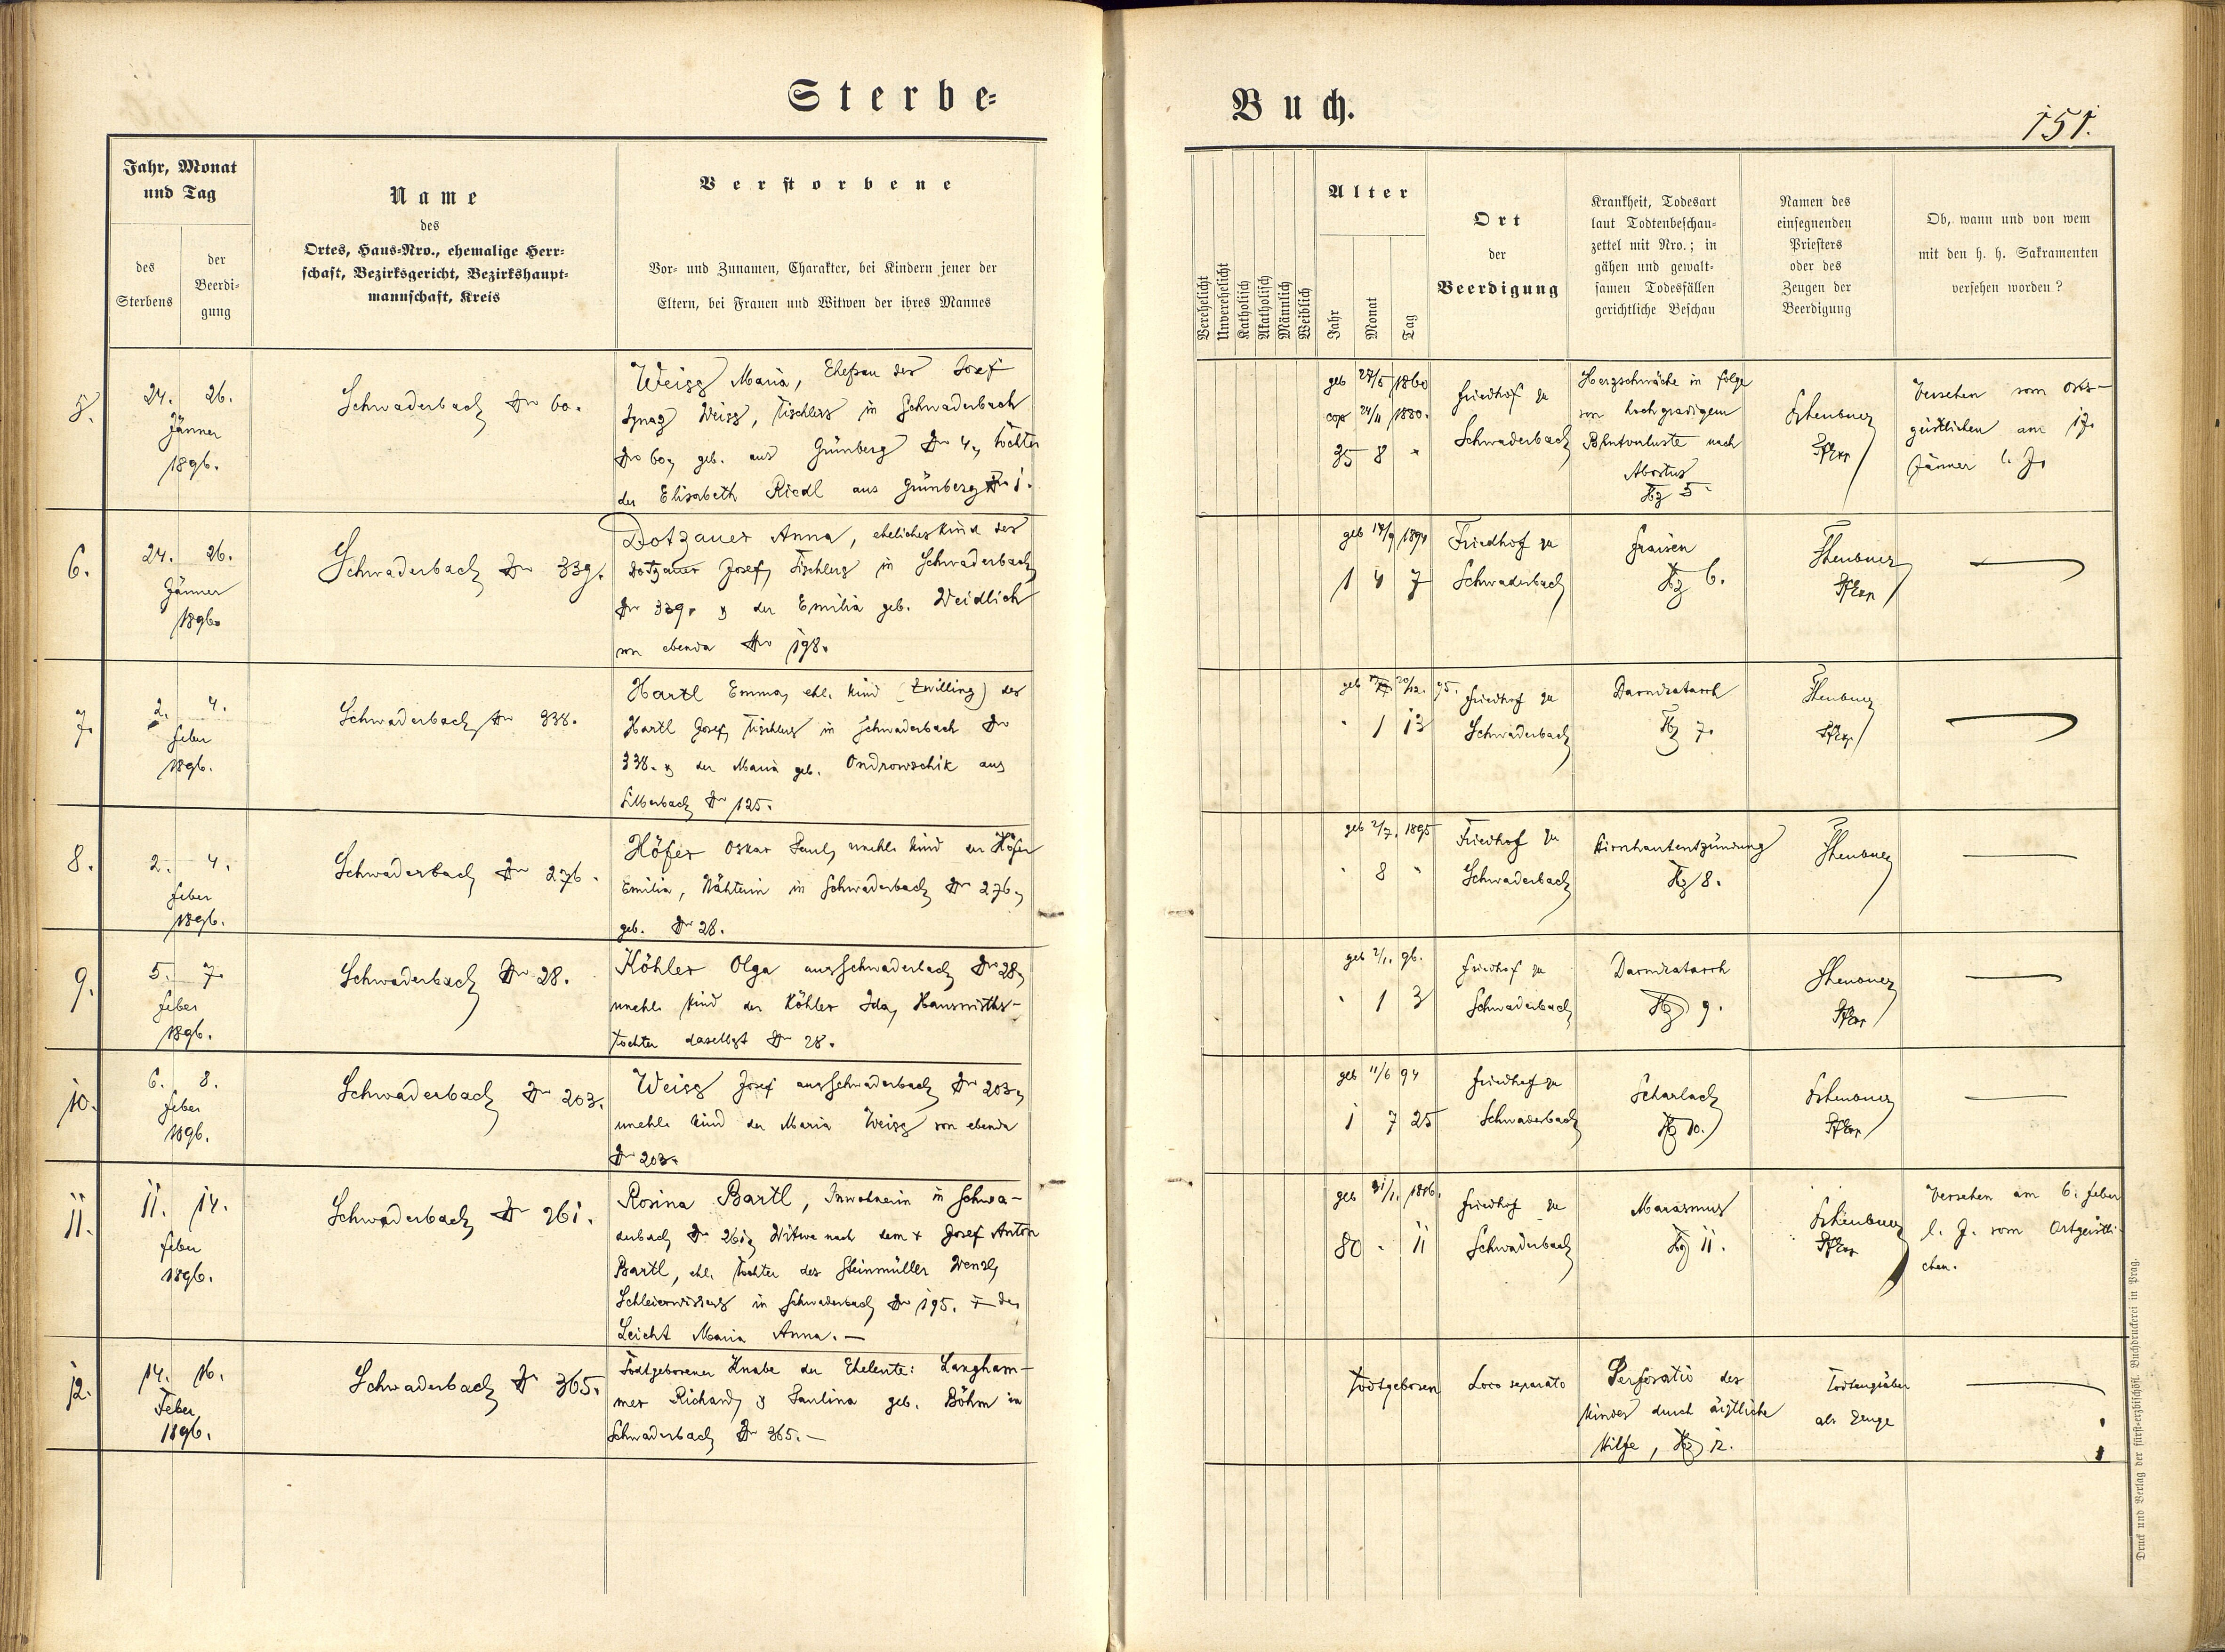 Sterbe-
Buch.
151.
Jahr, Monat
und Tag
des
Sterbens
der
Beerdi-
gung
Name
des
Ortes, Haus-Nro., ehemalige Herr-
schaft, Bezirksgericht, Bezirkshaupt-
mannschaft, Kreis
Verstorbene
Vor- und Zunamen, Charakter, bei Kindern jener der
Eltern, bei Frauen und Witwen der ihres Mannes
Verehelicht
Unverehelicht
Katholisch
Akatholisch
Männlich
Weiblich
Alter
Jahr
Monat
Tag
Ort
der
Beerdigung
Krankheit, Todesart
laut Todtenbeschau-
zettel mit Nro.; in
gähen und gewalt-
samen Todesfällen
gerichtliche Beschau
Namen des
einsegnenden
Priesters
oder des
Zeugen der
Beerdigung
Ob, wann und von wem
mit den h. h. Sakramenten
versehen worden?
5.
24. 26.
Jänner
1896.
Schwaderbach Nr 60.
Weiss Maria, Ehefrau des Josef
Ignaz Weiss, Tischlers in Schwaderbach
Nro 60, geb. aus Grünberg Nr 4, Tochter
der Elisabeth Riedl aus Grünberg Nr 1.
geb 27/5 1860
cop 24/11 1880.
35 8
Friedhof zu
Schwaderbach
Herzschwäche in folge
von hochgradigem
Blutverluste nach
Abortus
5
Versehen vom Orts-
geistlichen am 17.
Jänner l. J.
6.
24. 26.
Jänner
1896.
Schwaderbach Nr 339.
Dotzauer Anna, eheliches Kind des
Dotzauer Josef, Tischlers in Schwaderbach
Nr 339. & der Emilia geb. Weidlich
von ebenda Nro 198.
geb 17/9 1894
1 4 7
Friedhof zu
Schwaderbach
Fraisen
6.
7.
2. 4.
Feber
1896.
Schwaderbach Nr 338.
Hartl Emma, ehl. Kind (Zwilling) des
Hartl Josef, Tischlers in Schwaderbach Nr
338. & der Maria geb. Ondrowschik aus
Silberbach Nr 125.
geb 20/12. 95.
1 13
Friedhof zu
Schwaderbach
Darmkatarrh
7.
8.
2. 4.
Feber
1896.
Schwaderbach Nr 276.
Höfer Oskar Paul, unehl. Kind der Höfer
Emilia, Nähterin in Schwaderbach Nr 276,
geb. Nr 26.
geb 2/7. 1895
8
Friedhof zu
Schwaderbach
Hirnhautentzündung
8.
9.
5. 7.
Feber
1896.
Schwaderbach Nr 28.
Köhler Olga aus Schwaderbach Nr 28,
unehl. Kind der Köhler Ida, Hauswirths-
tochter daselbst Nr 28.
geb 2/1. 96.
1 3
Friedhof zu
Schwaderbach
Darmkatarrh
9.
10.
6. 8.
Feber
1896.
Schwaderbach Nr 203.
Weiss Josef aus Schwaderbach Nr 203,
unehl. Kind der Maria Weiss von ebenda
Nr 203.
geb 11/6 94
1 7 25
Friedhof zu
Schwaderbach
Scharlach
10.
11.
11. 14.
Feber
1896.
Schwaderbach Nr 261.
Rosina Bartl, Inwohnerin in Schwa-
derbach Nr 261, Witwe nach dem + Josef Anton
Bartl, ehl. Tochter des Steinmüller Wenzl,
in Schwaderbach Nr 195. & der
Leicht Maria Anna. —
geb 31/1. 1816.
80 . 11
Friedhof zu
Schwaderbach
Marasmus
11.
Versehen am 6. Feber
l. J. vom Ortgeistli-
chen.
12.
14. 16.
Feber
1896.
Schwaderbach Nr 365.
Todtgeborener Knabe der Eheleute: Langham-
mer Richard, & Paulina geb. Böhm in
Schwaderbach Nr 365. —
Todtgeboren
Loco separato
Perforatio des
Kindes durch ärztliche
Hilfe, 12.
Todtengräber
als Zeuge
Druck und Verlag der fürst-erzbischöfl. Buchdruckerei in Prag.